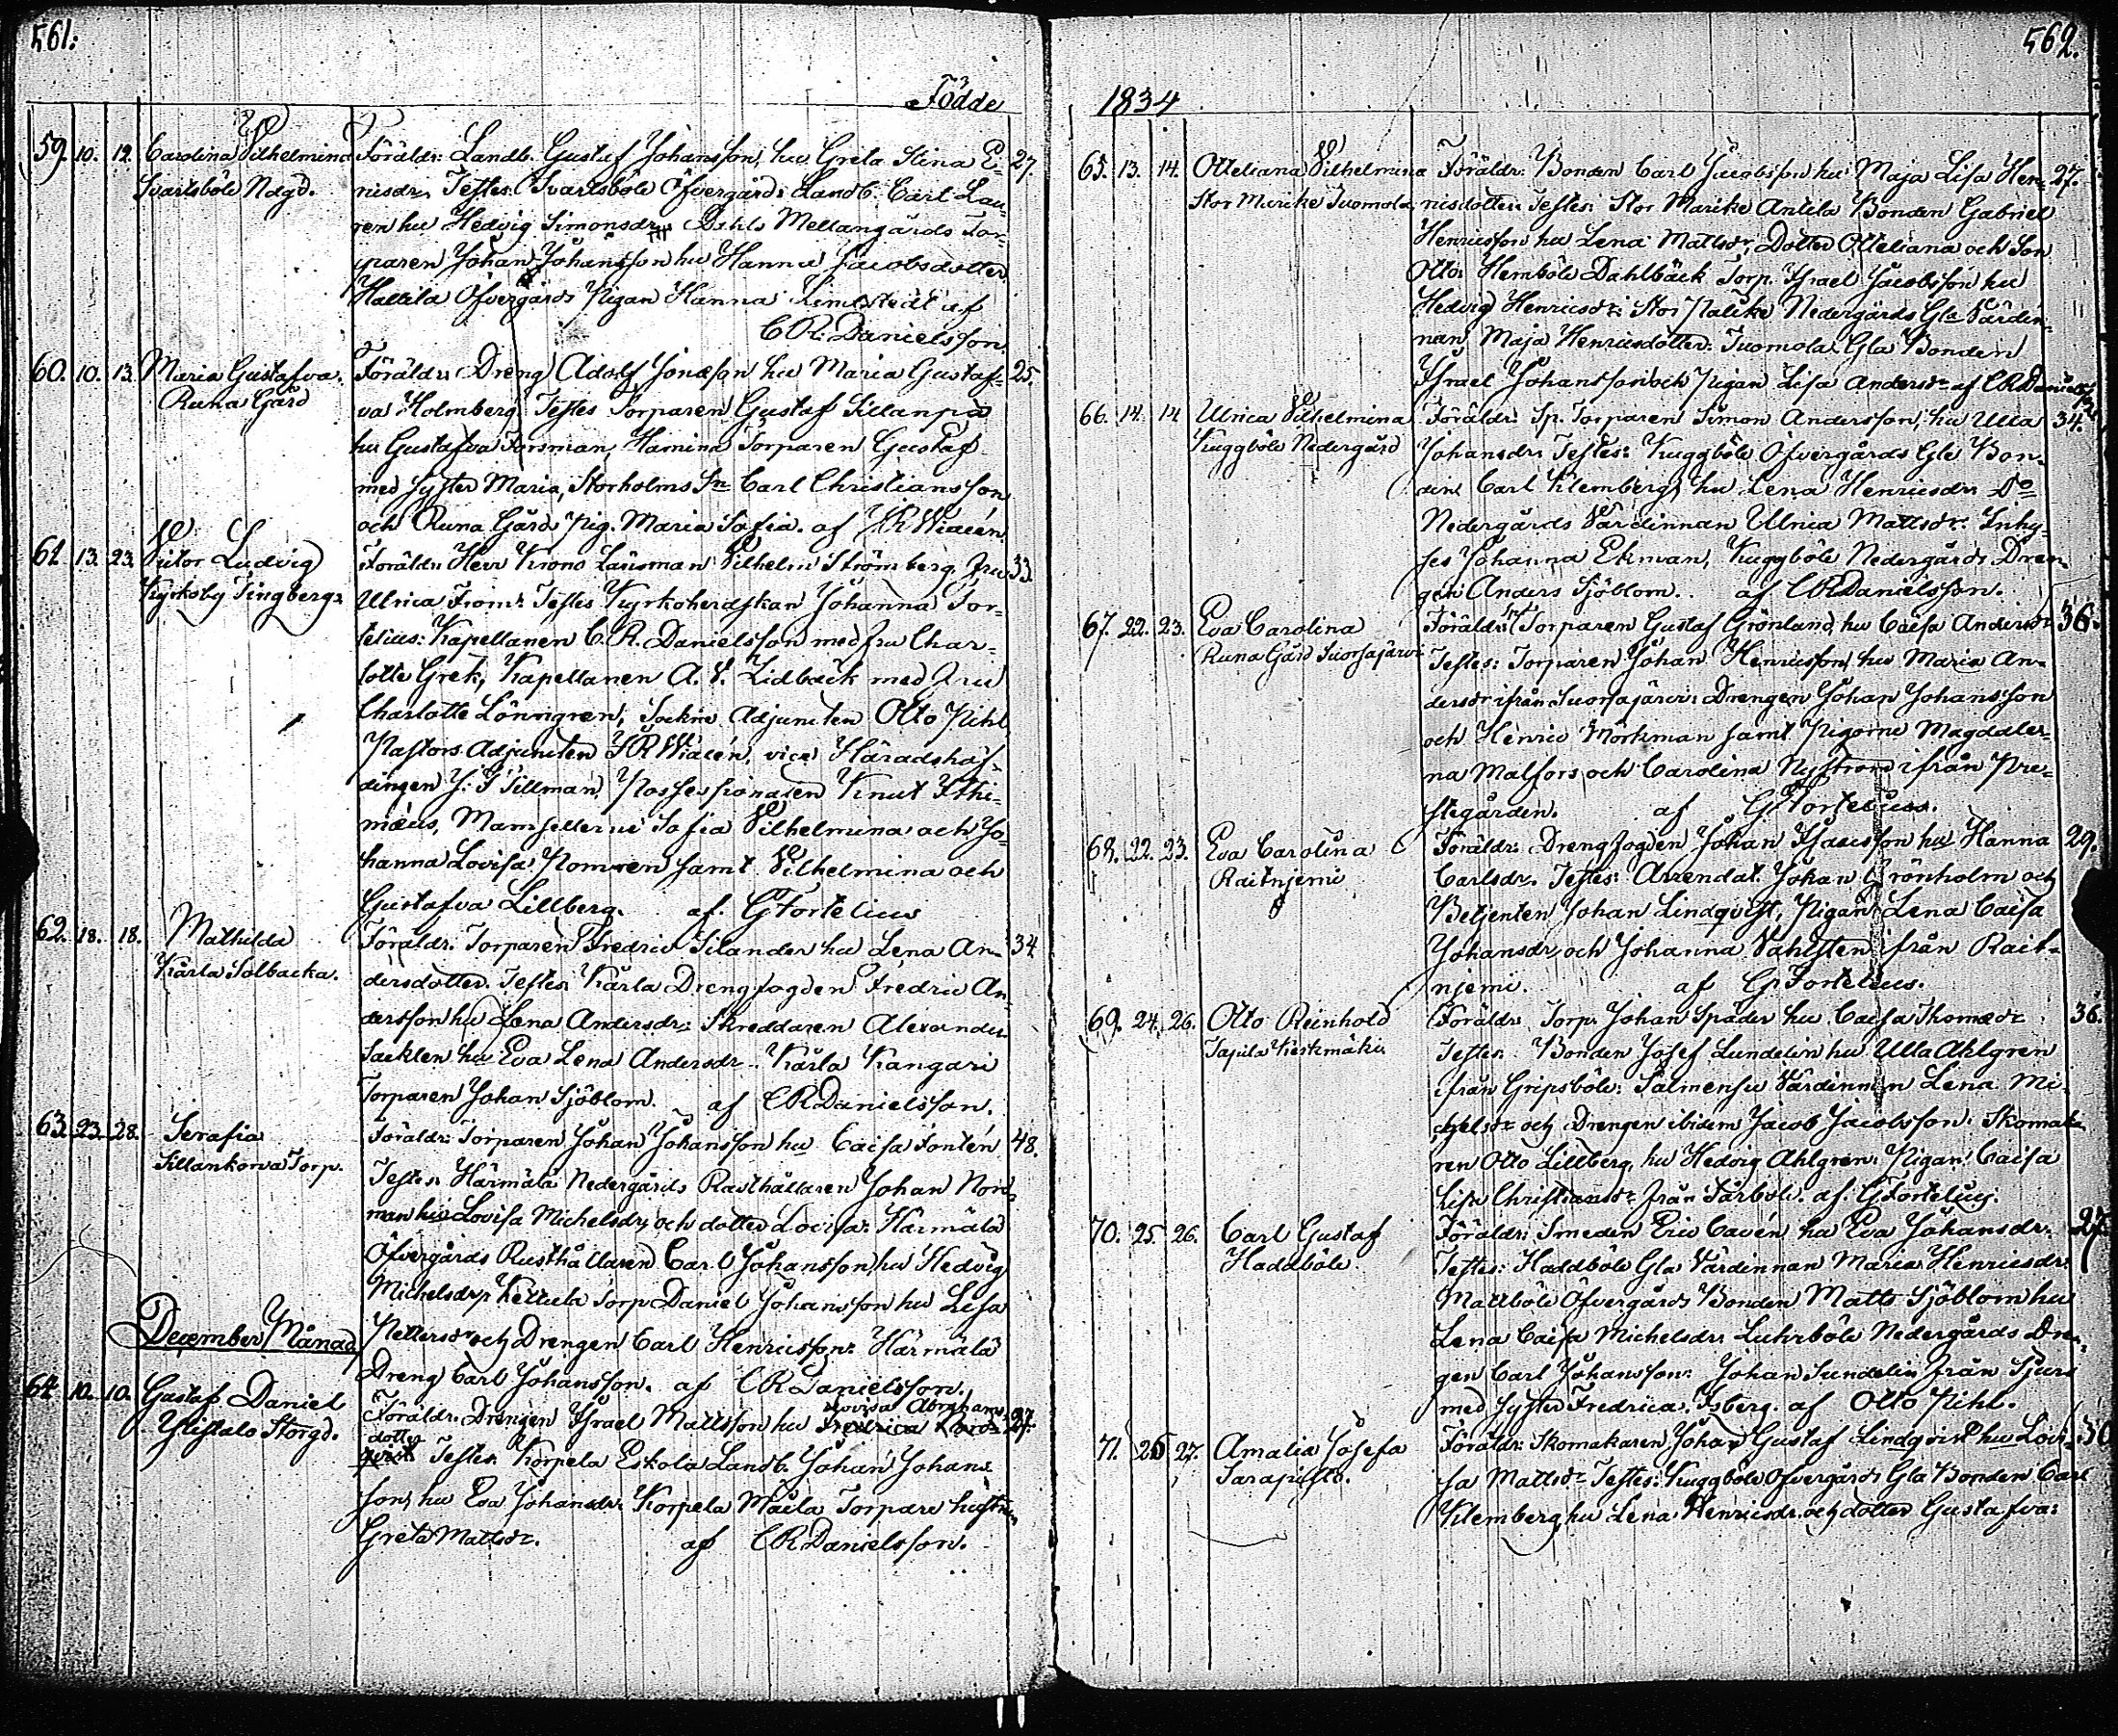 561.
Födde
59. 10. 12. Carolina Vilhelmina Föräldr: Landb. Gustaf Johansson, hu Greta Stina E- 27.
Svartsböle Ndgd. nisdr. Testes: Svartsböle Öfvergårds Landb. Carl Lau-
ren hu Hedvig Simonsdr Mellangårds Tor-
paren Johan Johansson hu Hanna Jacobsdotter
Hattila Öfvergårds Pigan Hanna Lindstedt af
C R. Danielsson.
60. 10. 13. Maria Gustafva. Föräldr: Dreng Adolf Jonasson hu Maria Gustaf- 25.
Runa Gård va Holmberg. Testes Torparen Gustaf Sillanpä
hu Gustafva Forsman, Hamina Torparen Gustaf
med syster Maria, Storholms Sn Carl Christiansson
och Runa Gårds Pig. Maria Sofia. af
61. 13. 23. Victor Ludvig Föräldr: Herr Krono Länsman Vilhelm Strömberg fru 33.
Kyrkoby Tingberga Ulrica From: Testes Kyrkoherdskan Johanna For-
telius: Kapellanen C. R. Danielsson med fru Char-
lotte Grek, Kapellanen A. V. Lidbäck med fru
Charlotte Lönngren, Sockne Adjuncten Otto Pihl,
Pastors Adjuncten vice Häradshöf-
dingen J. G Tillman, Possessionaten Knut Ithi-
mæus, Mamsellerne Sofia Vilhelmina och Jo-
hanna Lovisa Pomren samt Vilhelmina och
Gustafva Lillberg. af. G Fortelius
62. 18. 18. Mathilda Föräldr. Torparen Fredric Silander hu Lena An- 34
Kårla Solbacka. dersdotter. Testes: Kårla Drengfogden Fredric An-
dersson hu Lena Andersdr: Skreddaren Alexander
Sacklen hu Eva Lena Andersdr.. Kårla Kangari
Torparen Johan Sjöblom. af C R Danielsson.
63. 23. 28. Serafia Föräldr: Torparen Johan Johansson hu Caisa Fontén 48.
Sillankorva Torp. Testes: Härmälä Nedergårds Rusthållaren Johan Nord-
man hu Lovisa Michelsdr och dotter Lovisa: Härmälä
Öfvergårds Rusthållaren Carl Johansson hu Hedvig
Michelsdr, Kettula Torp Daniel Johansson hu Lisa
December Månad Pettersdr och Drengen Carl Henricsson: Härmälä
Dreng Carl Johansson. af C R Danielsson.
64. 10. 10. Gustaf Daniel Föräldr. Drengen Israel Mattsson hu Lovisa Abrahams 27.
Ylistalo Storgd. dotter Testes: Korpela Eskola Landb. Johan Johans-
son, hu Eva Johansdr: Korpela Mäila Torpare hustru
Greta Mattsdr. af C R Danielsson.
562.
1834
65. 13. 14. Otteliana Vilhelmina Föräldr: Bonden Carl Jacobsson hu Maja Lisa Hen- 27.
Stor Marike Tuomola, ricsdotter. Testes: Stor Marike Antila Bonden Gabriel
Henricsson hu Lena Mattsdr, Dotter Otteliana och Son
Otto: Hemböle Dahlbäck Torp. Israel Jacobsson hu
Hedvig Henricsdr: Stor Palike Nedergårds Gla Värdin-
nan Maja Henricsdotter. Tuomola Gla Bonden
Israel Johansson och Pigan Lisa Andersdr af C R Danielsson
66. 14. 14 Ulrica Vilhelmina Föräldr: Sp. Torparen Simon Andersson, hu Ulla 34.
Kuggböle Nedergård Johansdr. Testes: Kuggböle Öfvergårds Gle Bon-
den Carl Klemberg, hu Lena Henricsdr: Do
Nedergårds Värdinnan Ulrica Mattsdr: Inhy-
ses Johanna Ekman, Kuggböle Nedergårds Dren-
gen Anders Sjöblom. af C R Danielsson.
67. 22. 23. Eva Carolina Föräldr: Torparen Gustaf Grönland, hu Caisa Andersdr 36.
Runa Gård Suorsajärvi Testes: Torparen Johan Henricsson hu Maria An-
dersdr ifrån Suorsajärvi: Drengen Johan Johansson
och Henric Mörkman samt Pigorne Magdale-
na Malfors och Carolina Nyström ifrån Pre-
stgården. af G Fortelius.
68. 22. 23. Eva Carolina Föräldr: Drengfogden Johan Isacsson hu Hanna 29.
Raitnjemi Carlsdr. Testes: Arrendat. Johan Grönholm och
Betjenten Johan Lindqvist, Pigan Lena Caisa
Johansdr, och Johanna Vahlsten ifrån Rait-
njemi. af G Fortelius.
69. 24. 26. Otto Reinhold Föräldr Torp. Johan Spader hu Caisa Thomasdr 36.
Tapila Keskmäki. Testes: Bonden Josef Lundelin hu Ulla Ahlgren
ifrån Gripsböle: Salmensu Värdinnan Lena Mi-
chelsdr och Drengen ibidem Jacob Jacobsson: Skomaka-
ren Otto Lillberg, hu Hedvig Ahlgren: Pigan Caisa
Lisa Christiansdr från af. G Fortelius.
70. 25. 26. Carl Gustaf Föräldr: Smeden Eric Cavén hu Eva Johansdr. 27.
Haddböle. Testes: Haddböle Gla Värdinnan Maria Henricsdr:
Mattböle Öfvergårds Bonden Matts Sjöblom hu
Lena Caisa Michelsdr: Luhrböle Nedergårds Dren-
gen Carl Johansson: Johan Sundelin från Sjura
med syster Fredrica Isberg. af Otto Pihl.
71. 26 27. Amalia Josefa Föräldr: Skomakaren Johan Gustaf Lindqvist hu Lovi- 30
Sarapisto. sa Mattsdr Testes: Kuggböle Öfvergårds Gla Bonden Carl
Klemberg hu Lena Henricsdr. och dotter Gustafva: